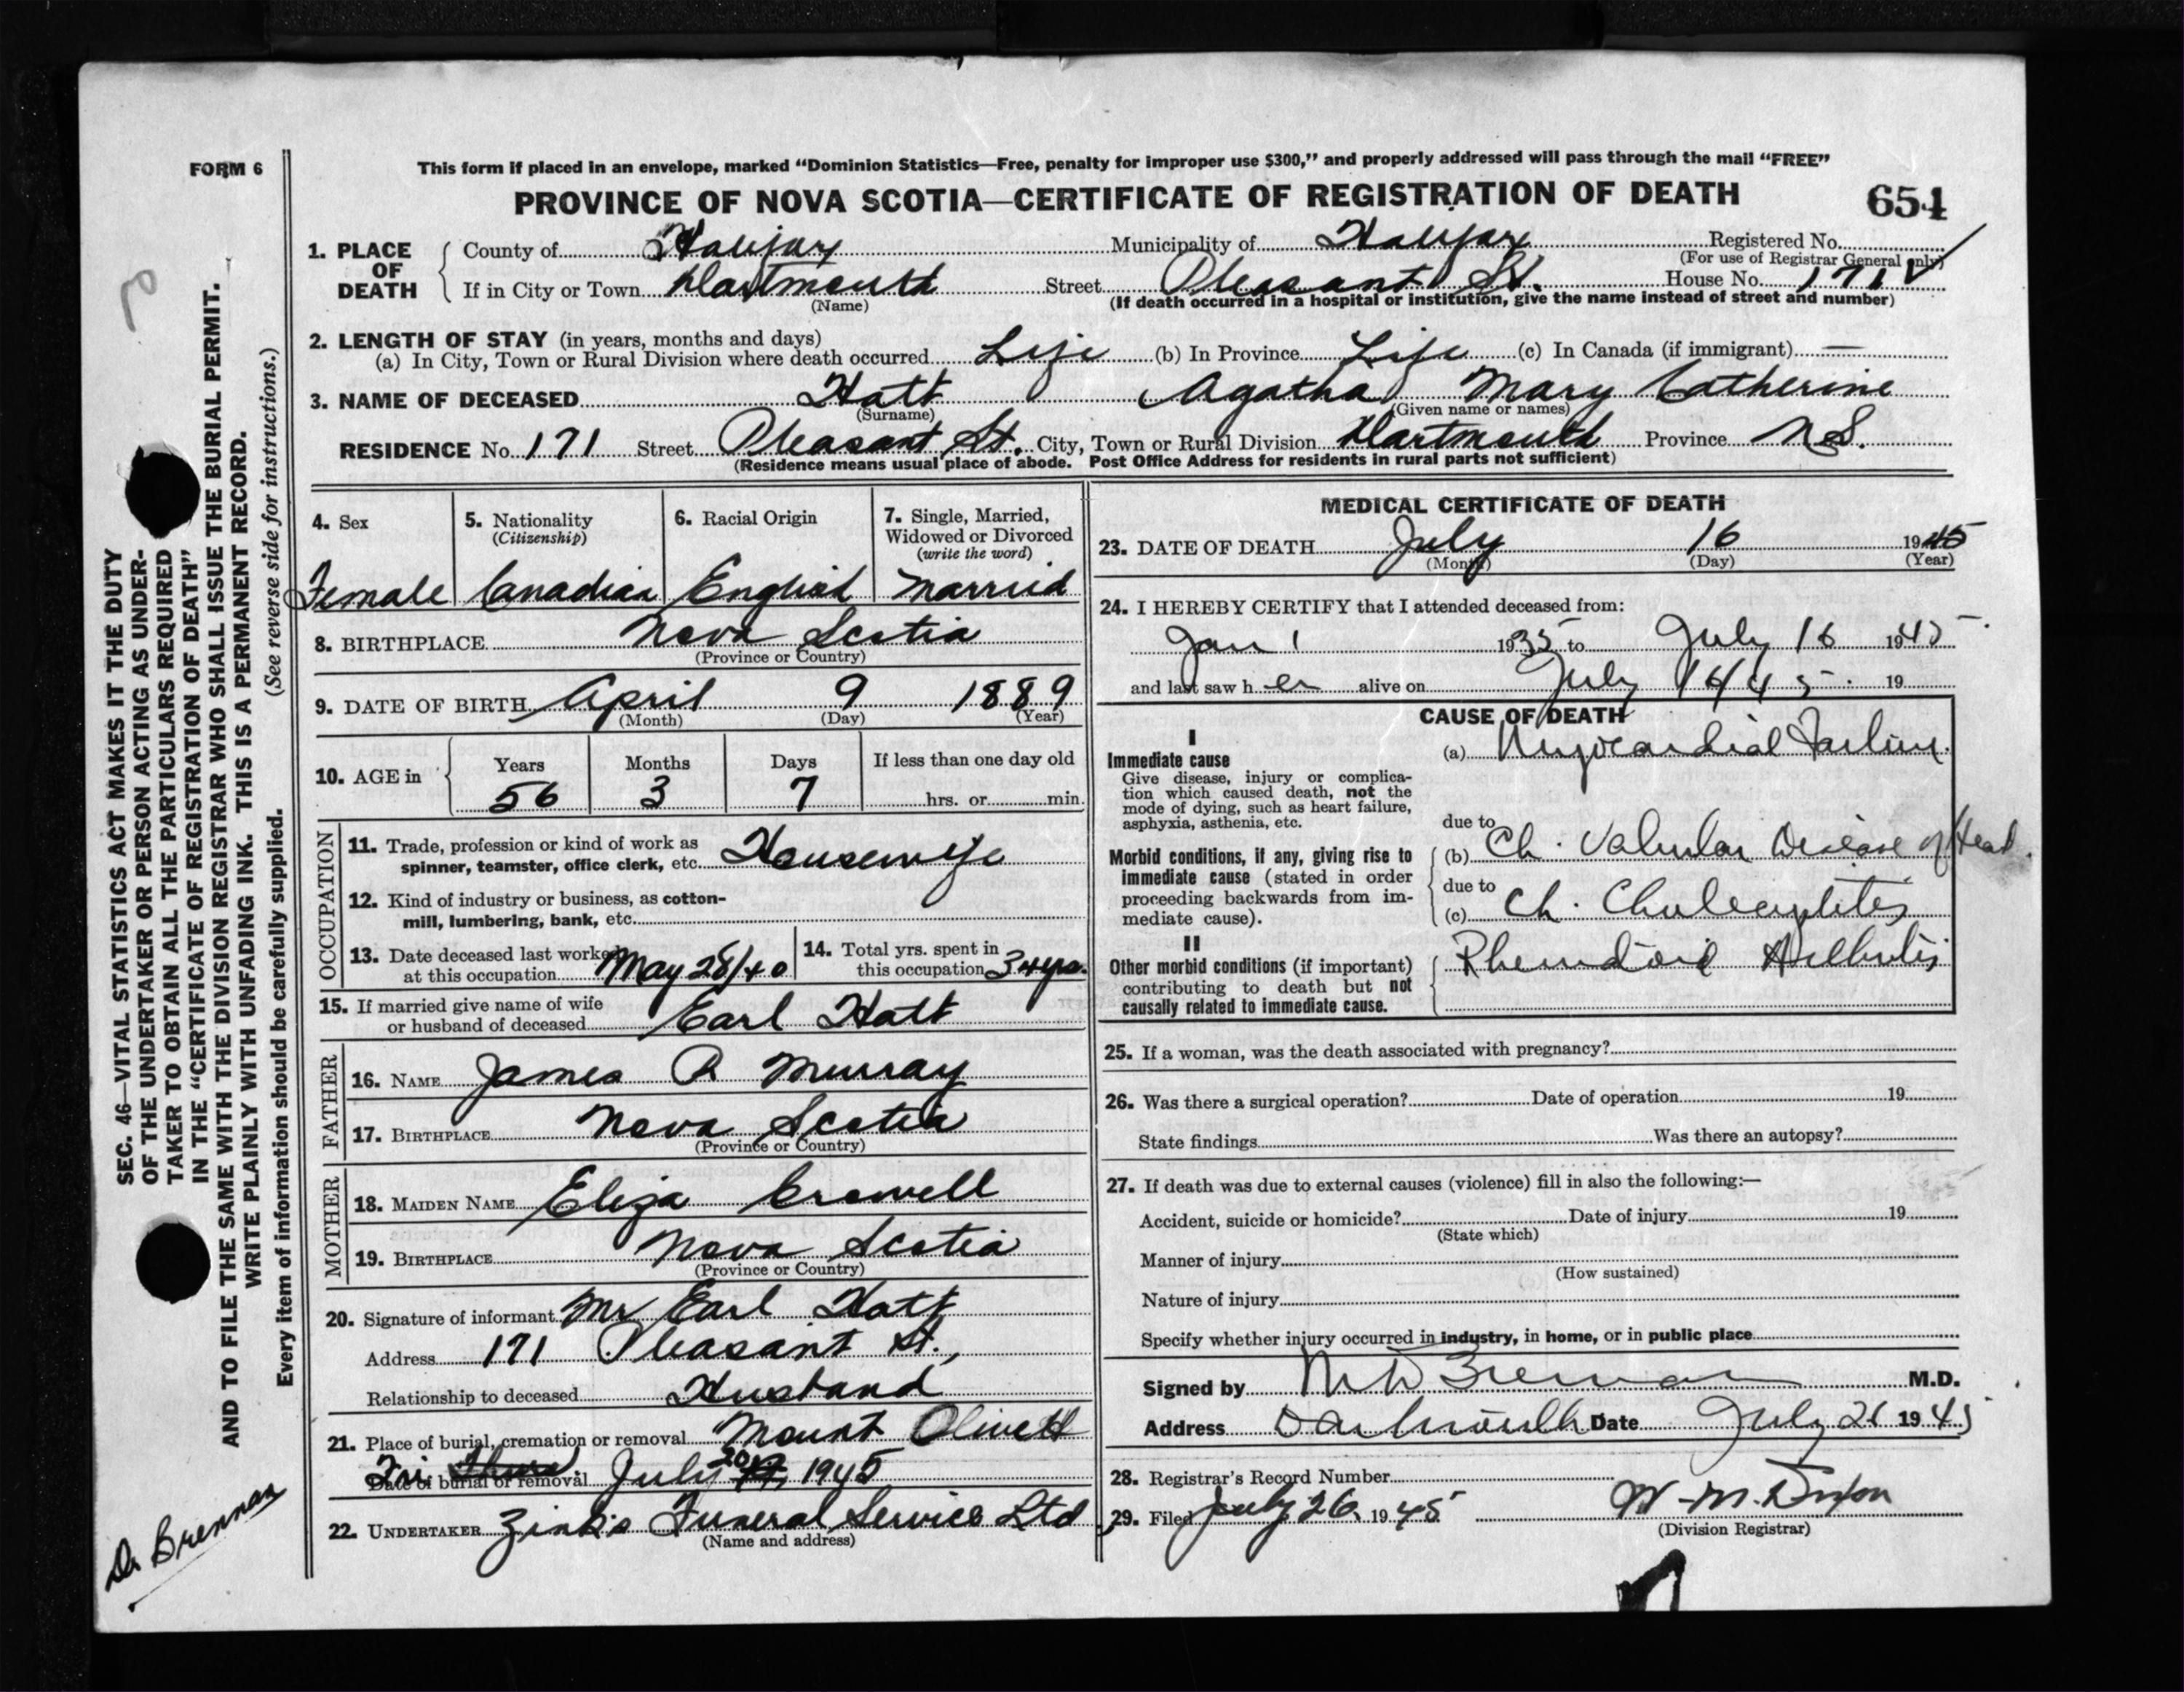 FORM 6
This form if placed in an envelope, marked “Dominion Statistics—Free, penalty for improper use $300,” and properly addressed will pass through the mail “FREE”
PROVINCE OF NOVA SCOTIA—CERTIFICATE OF REGISTRATION OF DEATH 654
1. PLACE OF DEATH { County of Halifax Municipality of Halifax Registered No.
(For use of Registrar General only)
If in City or Town Dartmouth Street Pleasant St. House No. 171
(Name) (If death occurred in a hospital or institution, give the name instead of street and number)
2. LENGTH OF STAY (in years, months and days)
(a) In City, Town or Rural Division where death occurred Life (b) In Province Life (c) In Canada (if immigrant) —
3. NAME OF DECEASED Hatt Agatha Mary Catherine
(Surname) (Given name or names)
RESIDENCE No. 171 Street Pleasant St. City, Town or Rural Division Dartmouth Province N.S.
(Residence means usual place of abode. Post Office Address for residents in rural parts not sufficient)
4. Sex 5. Nationality (Citizenship) 6. Racial Origin 7. Single, Married, Widowed or Divorced (write the word)
Female Canadian English Married
8. BIRTHPLACE Nova Scotia
(Province or Country)
9. DATE OF BIRTH April 9 1889
(Month) (Day) (Year)
10. AGE in { Years Months Days If less than one day old
56 3 7 hrs. or min.
OCCUPATION
11. Trade, profession or kind of work as
spinner, teamster, office clerk, etc. Housewife
12. Kind of industry or business, as cotton-
mill, lumbering, bank, etc.
13. Date deceased last worked
at this occupation May 28/40
14. Total yrs. spent in
this occupation 34 yrs.
15. If married give name of wife
or husband of deceased Earl Hatt
FATHER
16. NAME James R Murray
17. BIRTHPLACE Nova Scotia
(Province or Country)
MOTHER
18. MAIDEN NAME Eliza Crowell
19. BIRTHPLACE Nova Scotia
(Province or Country)
20. Signature of informant Mr Earl Hatt
Address 171 Pleasant St.,
Relationship to deceased Husband
21. Place of burial, cremation or removal Mount Olivett
Fri Thurs.
Date of burial or removal July 20 1945
22. UNDERTAKER Zink's Funeral Service Ltd
(Name and address)
MEDICAL CERTIFICATE OF DEATH
23. DATE OF DEATH July 16 1945
(Month) (Day) (Year)
24. I HEREBY CERTIFY that I attended deceased from:
Jan 1 1935 to July 16 1945
and last saw her alive on July 16 45. 19
CAUSE OF DEATH
I
Immediate cause (a) Myocardial Failure.
Give disease, injury or complica-
tion which caused death, not the
mode of dying, such as heart failure,
asphyxia, asthenia, etc.
due to
Morbid conditions, if any, giving rise to (b) Ch. Valvular Disease of Heart.
immediate cause (stated in order
due to
proceeding backwards from im-
mediate cause). (c) Ch. Cholecystitis
II
Other morbid conditions (if important) Rheumatoid Arthritis
contributing to death but not
causally related to immediate cause.
25. If a woman, was the death associated with pregnancy?
26. Was there a surgical operation? Date of operation 19
State findings Was there an autopsy?
27. If death was due to external causes (violence) fill in also the following:—
Accident, suicide or homicide? Date of injury 19
(State which)
Manner of injury
(How sustained)
Nature of injury
Specify whether injury occurred in industry, in home, or in public place
Signed by Brennan M.D.
Address Dartmouth Date July 21 1945
28. Registrar's Record Number
29. Filed July 26, 1945 W. M. Dixon
(Division Registrar)
SEC. 46—VITAL STATISTICS ACT MAKES IT THE DUTY
OF THE UNDERTAKER OR PERSON ACTING AS UNDER-
TAKER TO OBTAIN ALL THE PARTICULARS REQUIRED
IN THE “CERTIFICATE OF REGISTRATION OF DEATH”
AND TO FILE THE SAME WITH THE DIVISION REGISTRAR WHO SHALL ISSUE THE BURIAL PERMIT.
WRITE PLAINLY WITH UNFADING INK. THIS IS A PERMANENT RECORD.
Every item of information should be carefully supplied. (See reverse side for instructions.)
Dr Brennan